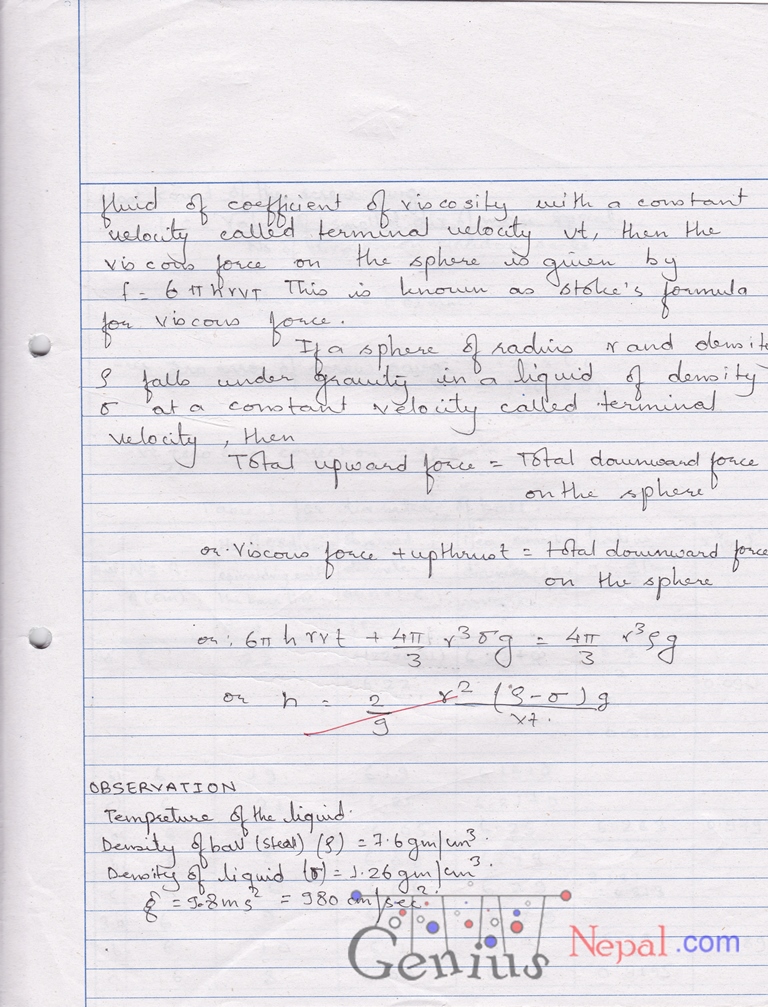 fluid of coefficient of viscosity with a constant
velocity called terminal velocity vt, then the
viscous force on the sphere is given by
f = 6 π h r v T This is known as stoke's formula
for viscous force.
If a sphere of radius r and densit
ρ falls under gravity in a liquid of density
σ at a constant velocity called terminal
velocity, then
Total upward force = Total downward force
on the sphere
or. Viscous force + upthrust = total downward force
on the sphere
or: 6π h r v t + 4π/3 r³σg = 4π/3 r³ρg
or h = 2/9 r² (ρ-σ) g / vt.
OBSERVATION
Tempreture of the liquid.
Density of ball (steel) (ρ) = 7.6 gm/cm³.
Density of liquid (σ) = 1.26 gm/cm³.
g = 9.8 ms² = 980 cm/sec².
Genius Nepal.com